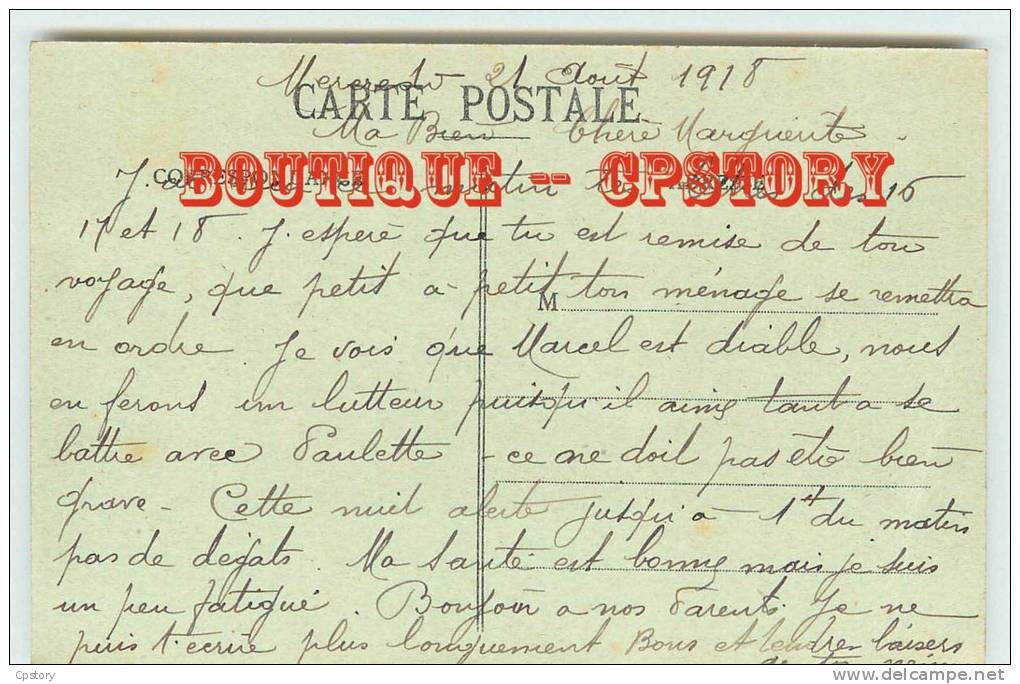 Mercredi 21 Août 1918
CARTE POSTALE
Ma Bien Chère Marguerite
BOUTIQUE -- CPSTORY
J. ai matin les des 16
17 et 18. J. espère que tu est remise de ton
voyage, que petit a petit ton ménage se remettra
M
en ordre. Je vois que Marcel est diable, nous
en ferons un lutteur puisqu'il aime tant a se
battre avec Paulette - ce ne doit pas être bien
grave - Cette nuit alerte jusqu'a 1h du matin
pas de dégats. Ma santé est bonne mais je suis
un peu fatigué. Bonjour a nos Parents. Je ne
puis t'écrire plus longuement Bons et tendres baisers
de ton
Cpstory
delcampe.net